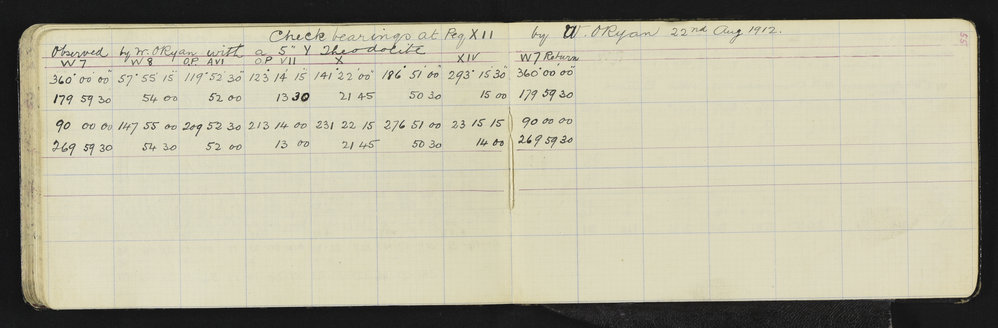 Check bearings at Peg XII by W. O'Ryan 22nd Aug 1912.
55
Observed by W. O'Ryan with a 5" Y Theodolite
W7 W8 O.P. AVI O.P VII X XIV W7 Return
360° 00' 00" 57° 55' 15" 119° 52' 30" 123° 14' 15" 141° 22' 00" 186° 51' 00" 293° 15' 30" 360° 00' 00"
179 59 30 54 00 52 00 13 30 21 45 50 30 15 00 179 59 30
90 00 00 147 55 00 209 52 30 213 14 00 231 22 15 276 51 00 23 15 15 90 00 00
269 59 30 54 30 52 00 13 00 21 45 50 30 14 00 269 59 30